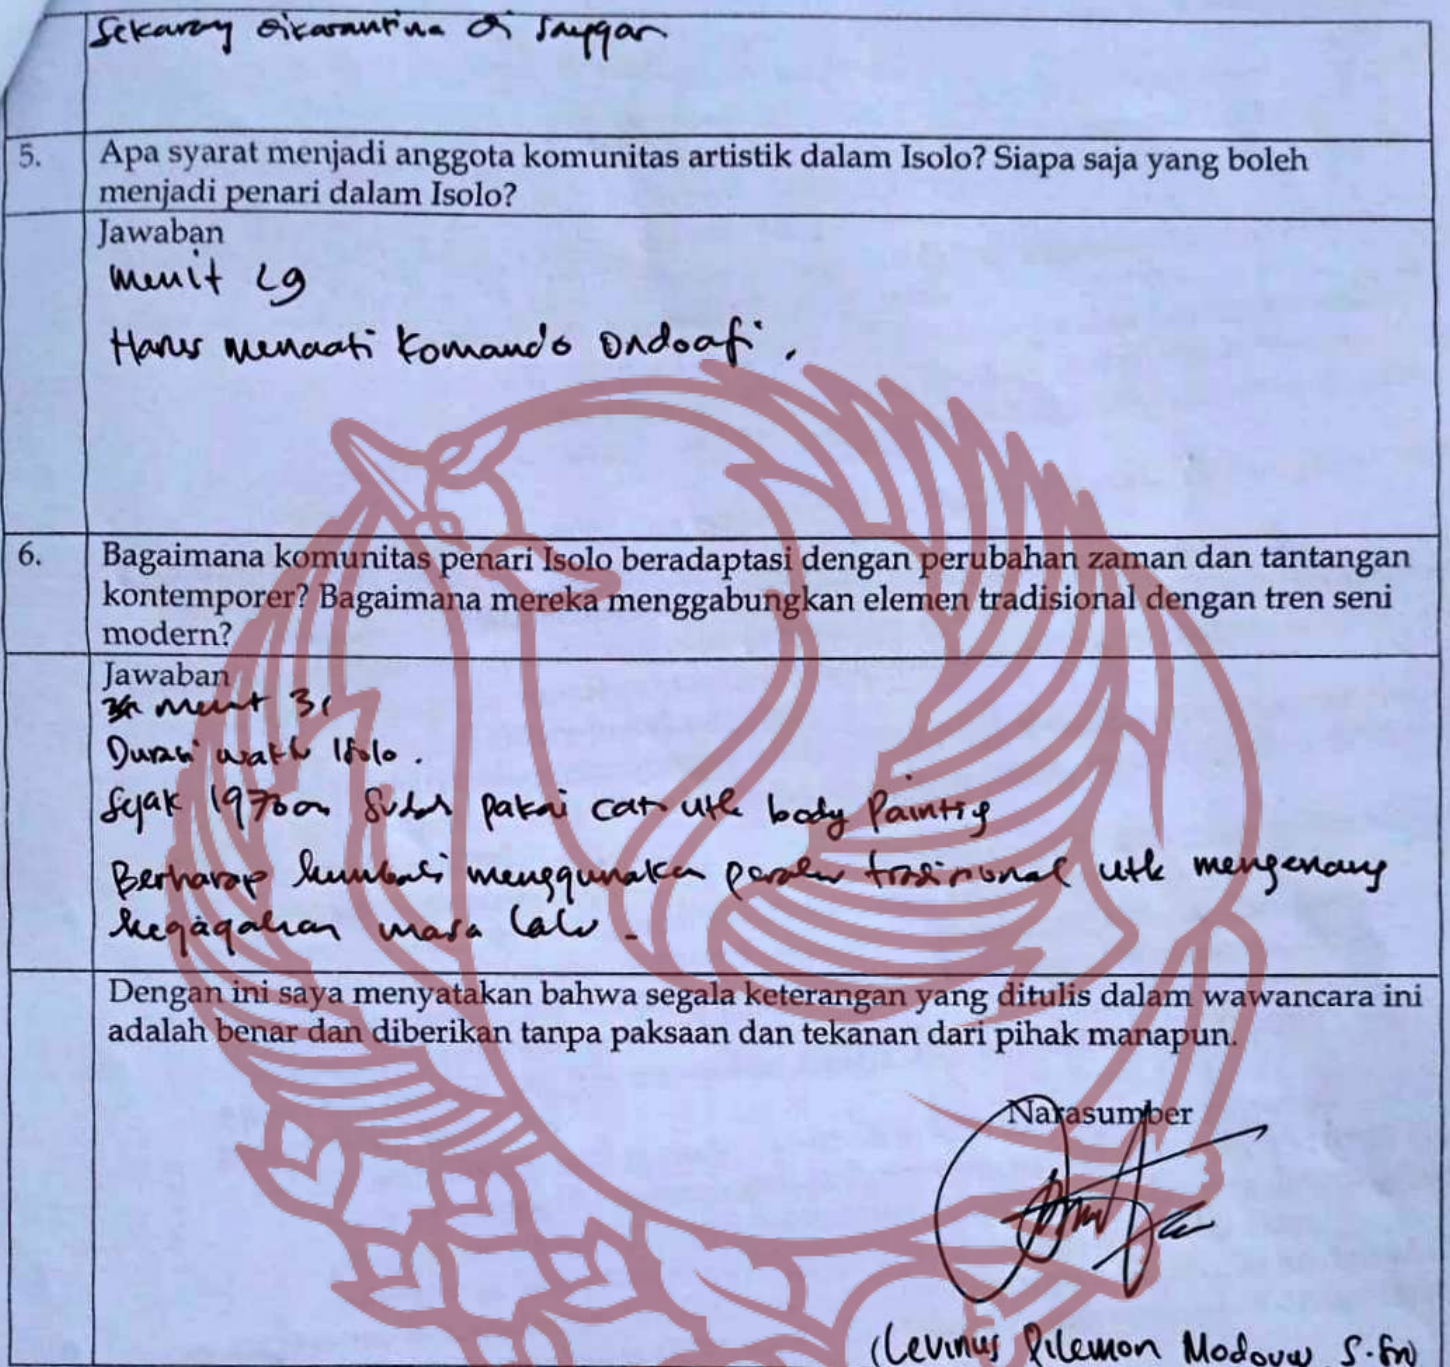 Sekarang dikarantina di Sanggar
5. Apa syarat menjadi anggota komunitas artistik dalam Isolo? Siapa saja yang boleh
menjadi penari dalam Isolo?
Jawaban
menit 29
Harus menaati Komando Ondoafi.
6. Bagaimana komunitas penari Isolo beradaptasi dengan perubahan zaman dan tantangan
kontemporer? Bagaimana mereka menggabungkan elemen tradisional dengan tren seni
modern?
Jawaban
menit 31
Durasi waktu Isolo.
Sejak 1970an Sudah pakai cat utk body Painting
Berharap kembali menggunakan tradisional utk mengenang
kegagahan masa lalu
Dengan ini saya menyatakan bahwa segala keterangan yang ditulis dalam wawancara ini
adalah benar dan diberikan tanpa paksaan dan tekanan dari pihak manapun.
Narasumber
(Levinus Pilemon Modouw S.Sn)